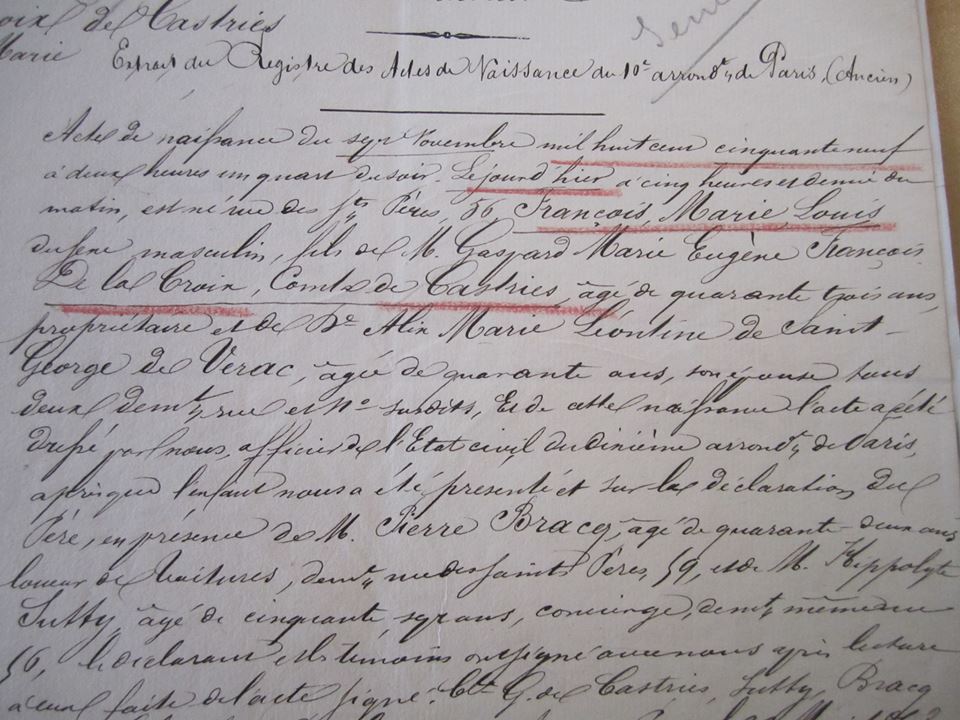 oix de Castries
Marie
Extrait du Registre des Actes de Naissance du 10e arrondt, de Paris, (Ancien)
Acte de naissance du sept Novembre mil huit cent cinquante neuf
à deux heures un quart du soir. Le jour d'hier à cinq heures et demie du
matin, est né rue des Sts Pères, 56, François, Marie Louis
du sexe masculin, fils de M. Gaspard Marie Eugène François
De la Croix, Comte de Castries, âgé de quarante trois ans,
propriétaire et de De Alix Marie Léontine de Saint-
George de Verac, âgée de quarante ans, son épouse tous
deux demt, rue et No susdits, Et de cette naissance l'acte a été
dressé par nous, officier de l'Etat civil du dixième arrondt, de Paris,
après que l'enfant nous a été présenté et sur la déclaration du
Père, en présence de M. Pierre Bracq, âgé de quarante-deux ans
loueur de Voitures, demt, rue des Saints Pères, 59, et de M. Hippolyte
Sutty, âgé de cinquante sept ans, concierge, demt, même rue
56, le déclarant et les témoins ont signé avec nous après lecture
à eux faite de l'acte signé: Cte G. de Castries, Sutty, Bracq